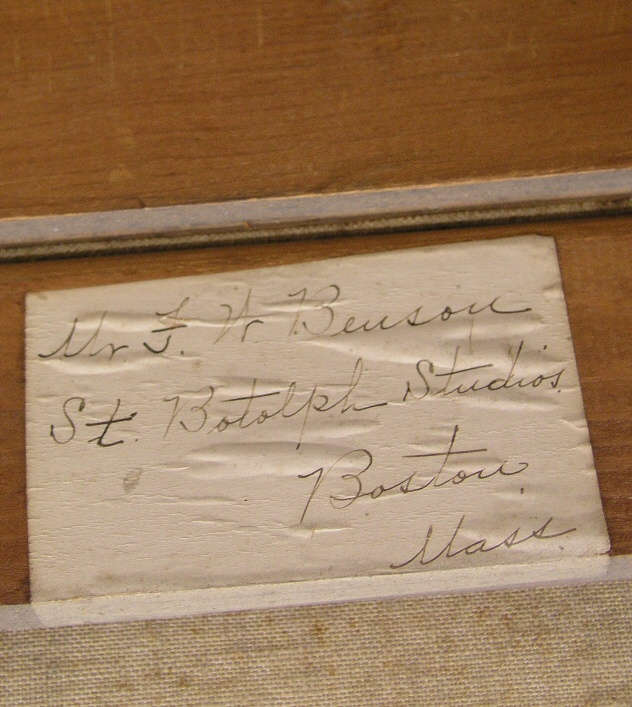 Mr F. W Benson
St. Botolph Studios.
Boston.
Mass.